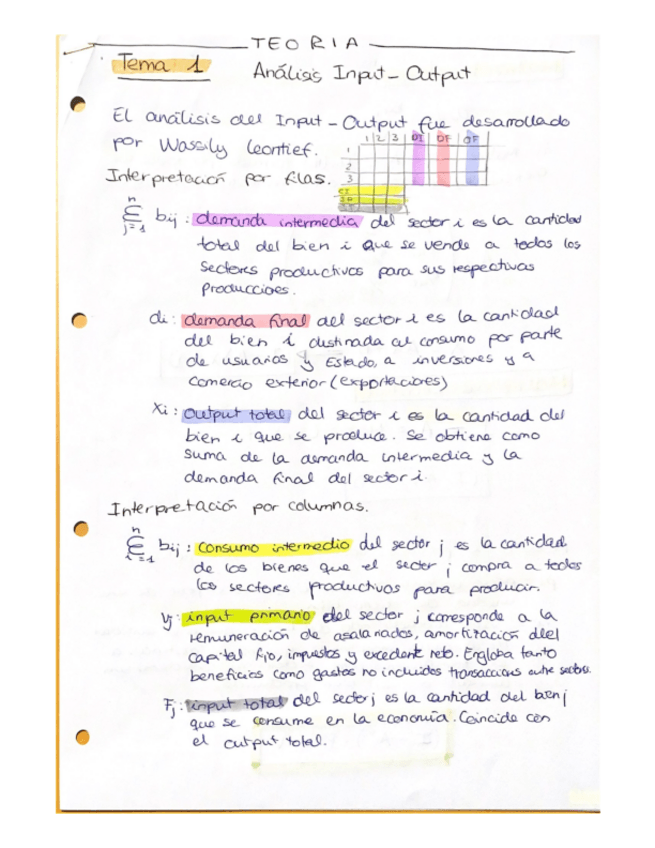 TEORIA
Tema 1
Análisis Input-Output
El análisis del Input-Output fue desarrollado
por Wassily Leontief.
1 2 3 DI DF OF
1
2
3
CI
Interpretación por filas.
n
Σ bij : demanda intermedia del sector i es la cantidad
j=1
total del bien i que se vende a todos los
sectores productivos para sus respectivas
producciones.
di: demanda final del sector i es la cantidad
del bien i destinada al consumo por parte
de usuarios y Estado, a inversiones y a
comercio exterior (exportaciones)
Xi: Output total del sector i es la cantidad del
bien i que se produce. Se obtiene como
suma de la demanda intermedia y la
demanda final del sector i.
Interpretación por columnas.
n
Σ bij : Consumo intermedio del sector j es la cantidad
i=1
de los bienes que el sector j compra a todos
los sectores productivos para producir.
Vj: input primario del sector j corresponde a la
remuneración de asalariados, amortización del
capital fijo, impuestos y excedente neto. Engloba tanto
beneficios como gastos no incluidos transacciones entre sectores.
Fj: input total del sector j es la cantidad del bien j
que se consume en la economía. Coincide con
el output total.